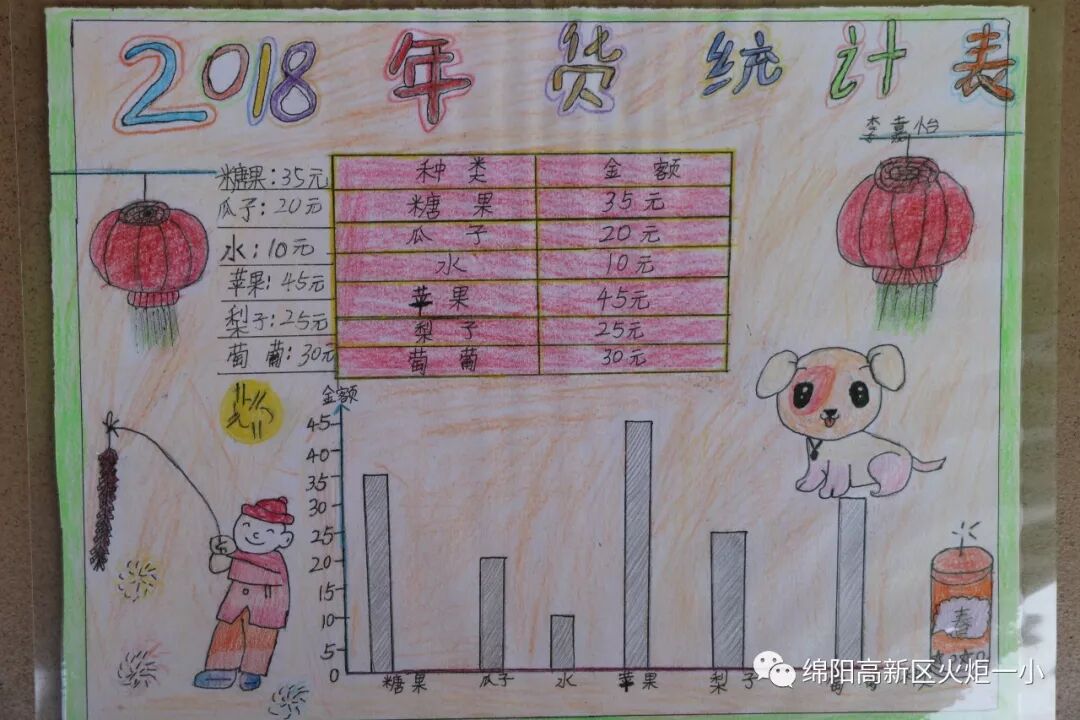 2018 年 货 统 计 表
李嘉怡
糖果:35元
瓜子:20元
水:10元
苹果:45元
梨子:25元
葡萄:30元
种类 金额
糖果 35元
瓜子 20元
水 10元
苹果 45元
梨子 25元
葡萄 30元
金额
45
40
35
30
25
20
15
10
5
0
糖果 瓜子 水 苹果 梨子
春
绵阳高新区火炬一小